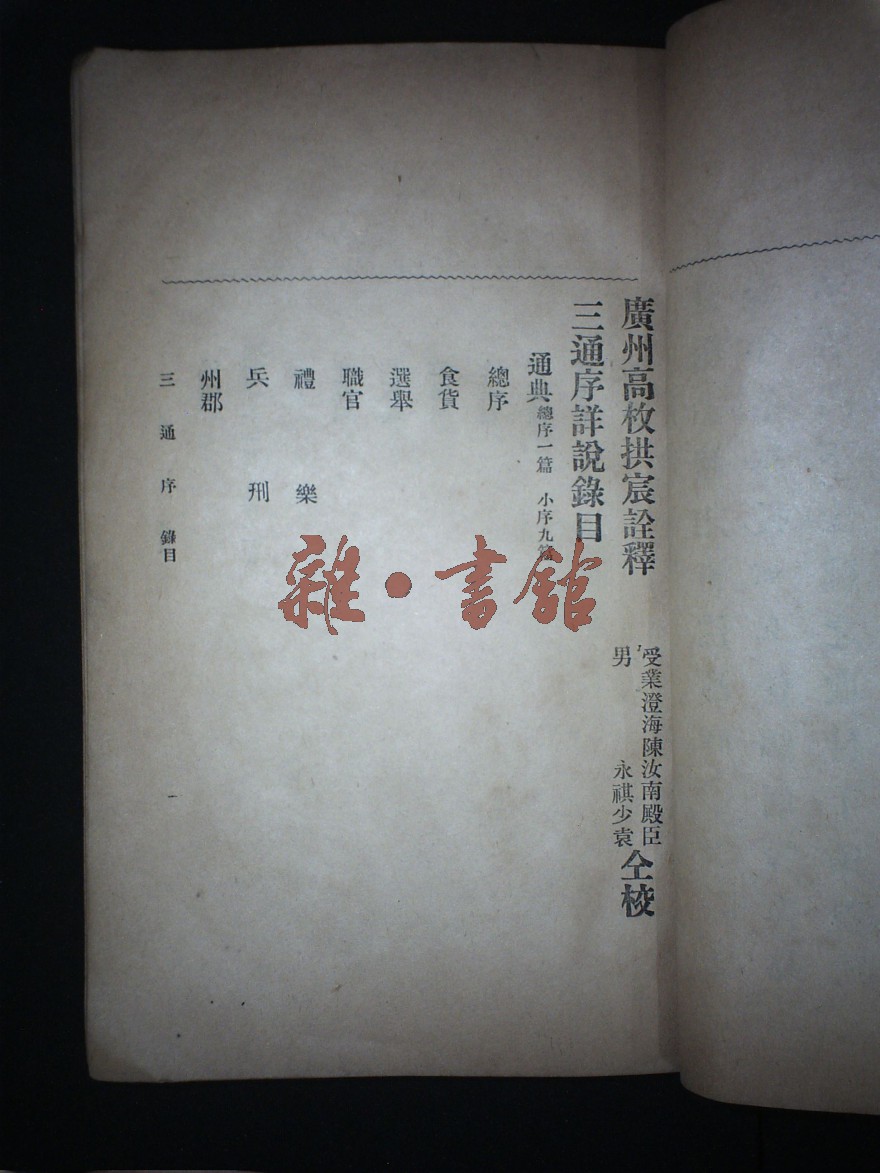 廣州高枚拱宸詮釋
受業澄海陳汝南殿臣
男 永祺少袁
仝校
三通序詳說錄目
通典 總序一篇 小序九篇
總序
食貨
選舉
職官
禮 樂
兵 刑
州郡
三通序 錄目
一
雜·書館